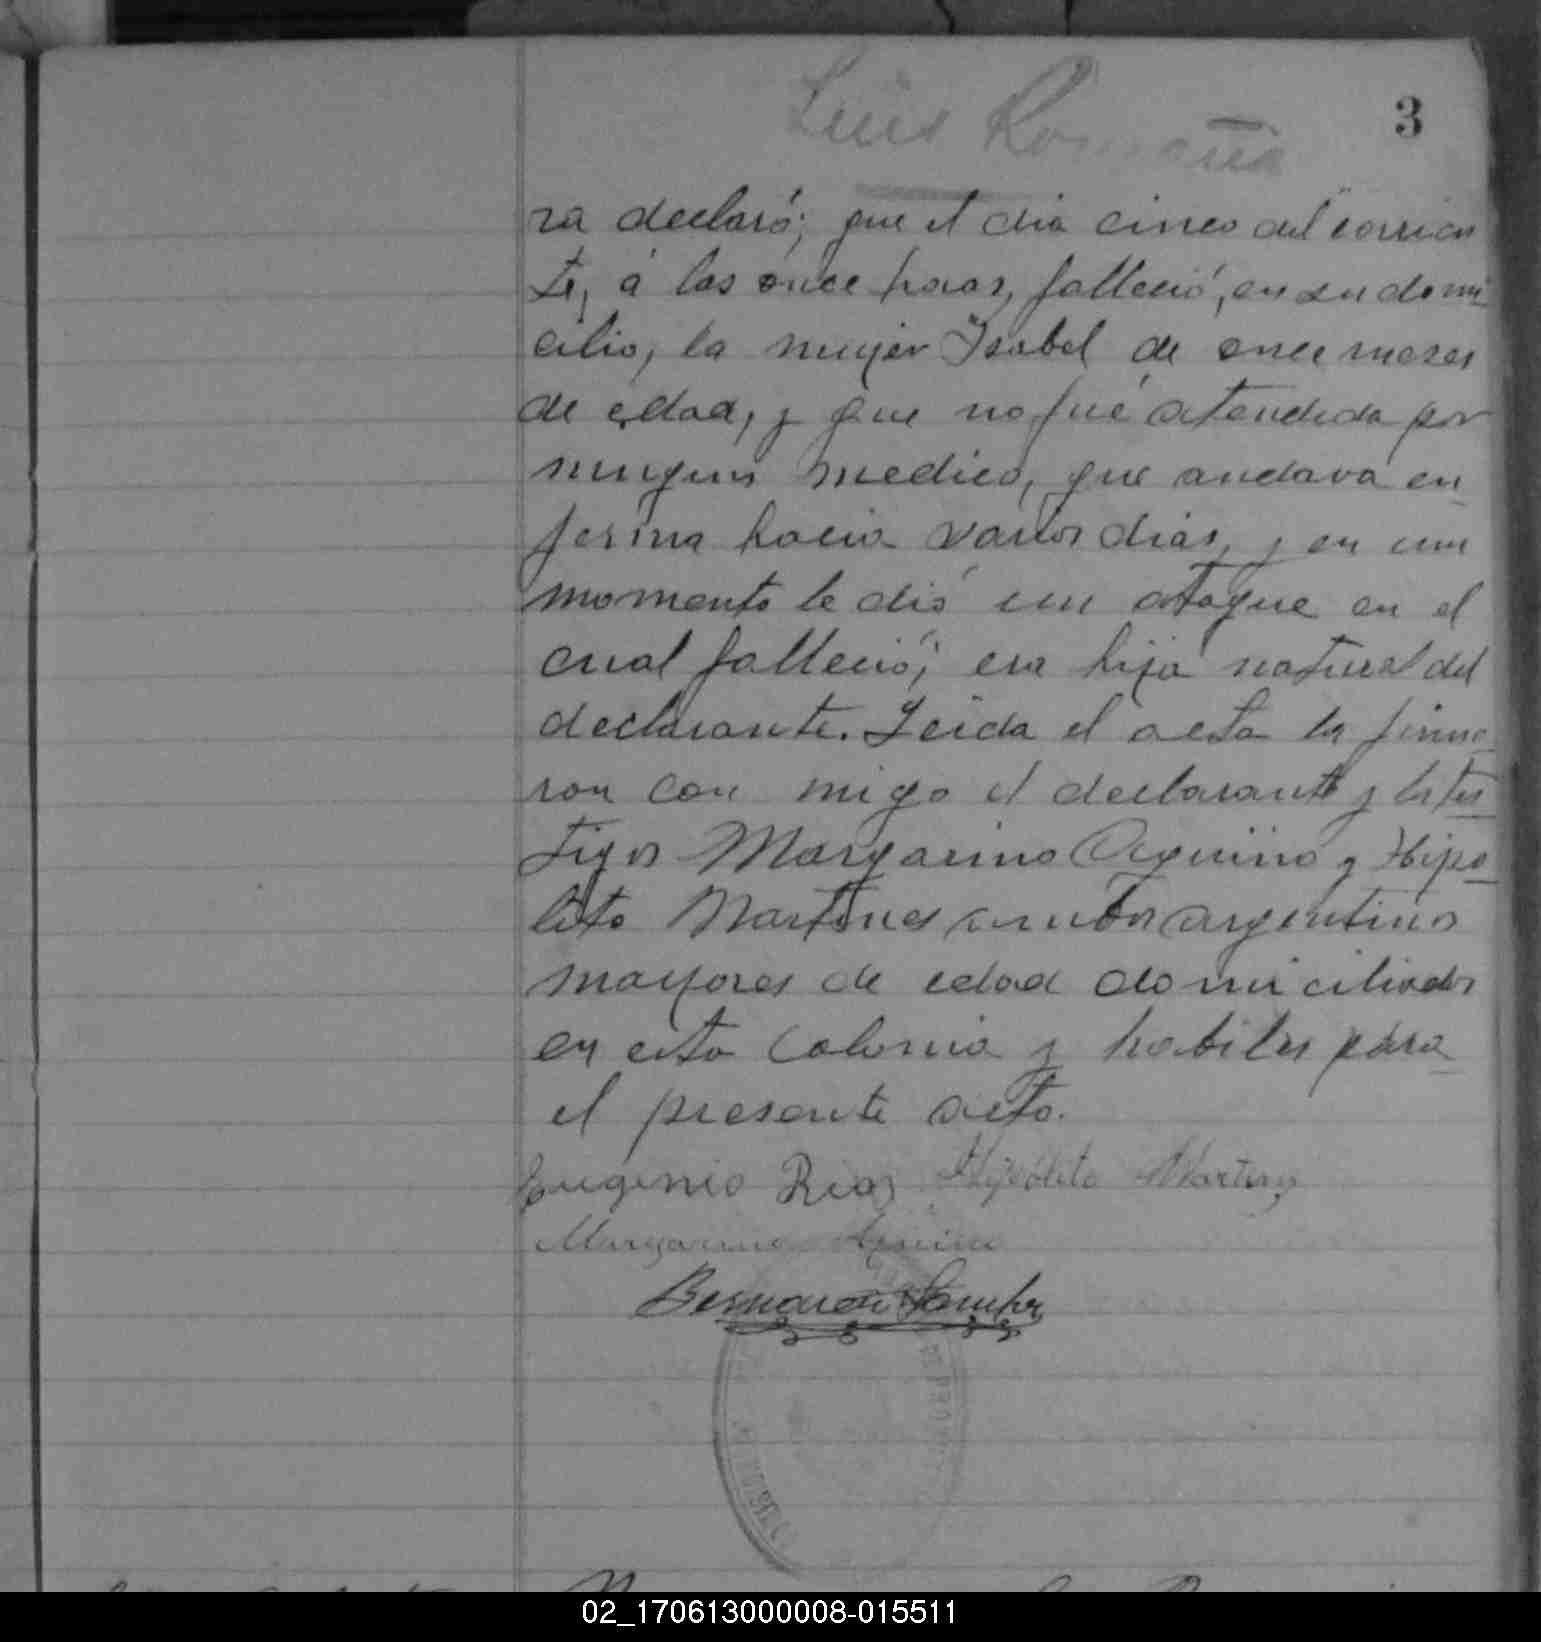 3
Luis Romaña
ra declaró; que el dia cinco del corrien
te, á las once horas, falleció, en su domi
cilio, la mujer Isabel de once meses
de edad, y que no fué atendida por
ningun medico, que andava en
ferma hacia varios dias, y en un
momento le dió un ataque en el
cual falleció; era hija natural del
declarante. Leida el acta la firma
ron con migo el declarante y los tes
tigos Margarino Aquino y Hipo
lito Martines ambos argentinos
mayores de edad domiciliados
en esta Colonia y habiles para
el presente acto.
Eugenio Rios Hipólito Martinez
Margarino Aquino
Bernardo
02_170613000008-015511